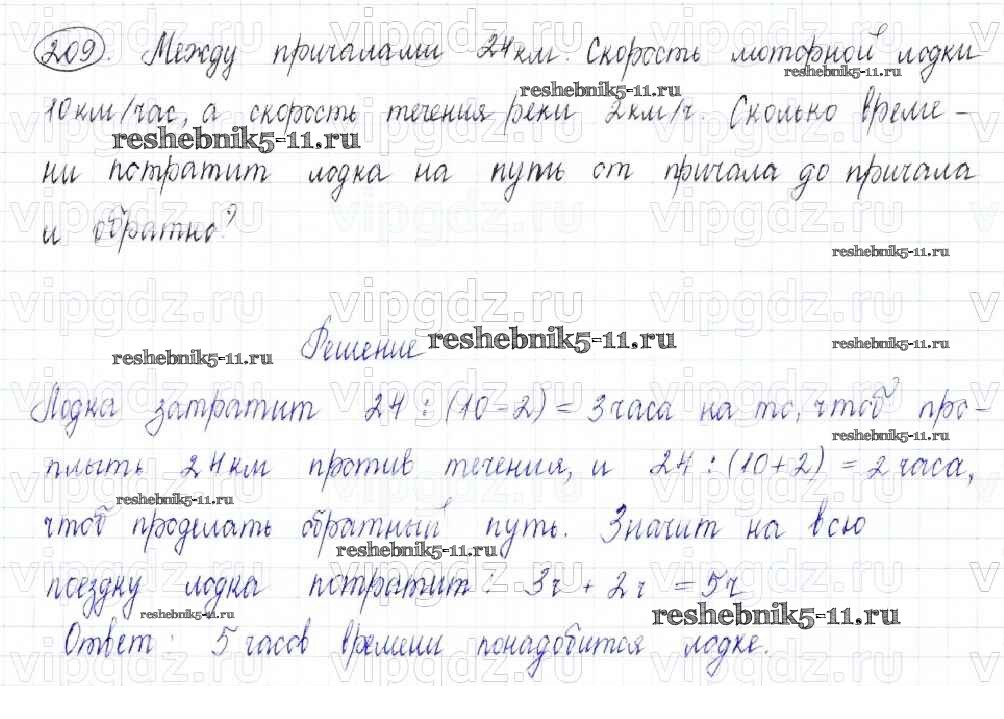 209. Между причалами 24 км. Скорость моторной лодки
10 км/час, а скорость течения реки 2 км/ч. Сколько време-
ни потратит лодка на путь от причала до причала
и обратно?
Решение
Лодка затратит 24 : (10 - 2) = 3 часа на то, чтоб про-
плыть 24 км против течения, и 24 : (10 + 2) = 2 часа,
чтоб проделать обратный путь. Значит на всю
поездку лодка потратит: 3ч + 2ч = 5ч
Ответ: 5 часов времени понадобится лодке.
vipgdz.ru
reshebnik5-11.ru